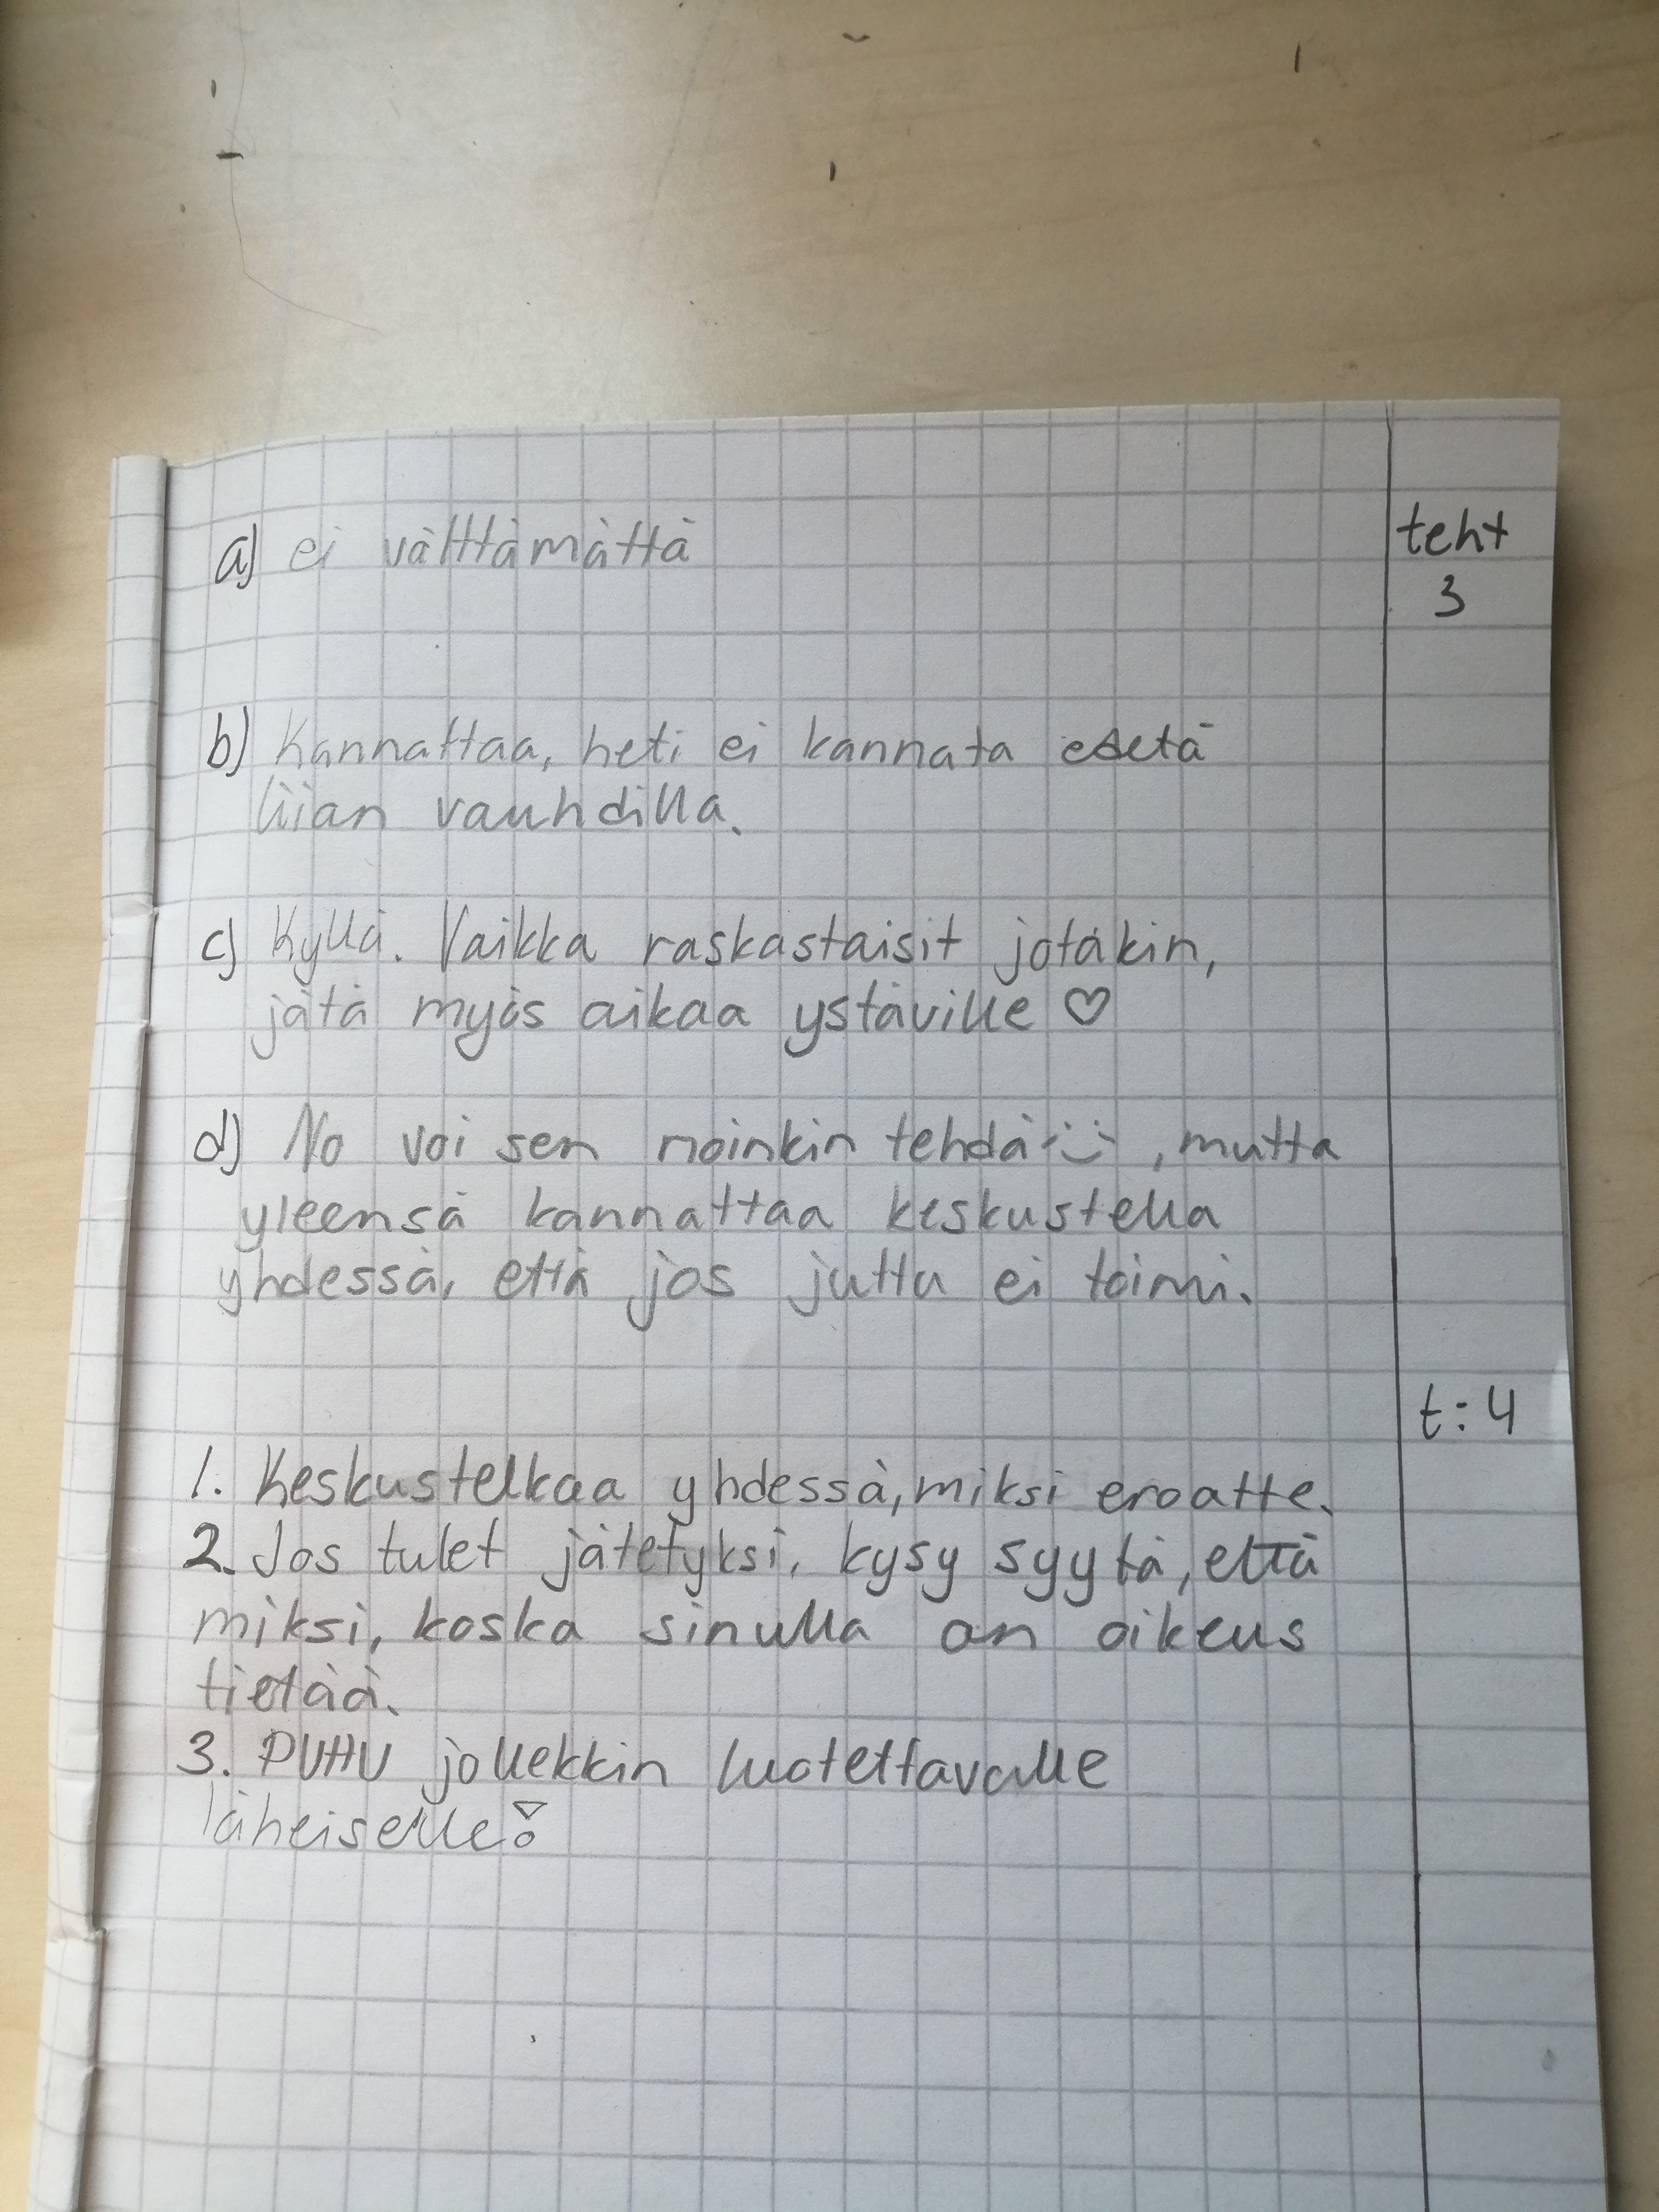 teht
3
a) ei välttämättä
b) Kannattaa, heti ei kannata edetä
liian vauhdilla.
c) Kyllä. Vaikka raskastaisit jotakin,
jätä myös aikaa ystäville ♡
d) No voi sen noinkin tehdä :), mutta
yleensä kannattaa keskustella
yhdessä, että jos juttu ei toimi.
t:4
1. Keskustelkaa yhdessä, miksi eroatte.
2. Jos tulet jätetyksi, kysy syytä, että
miksi, koska sinulla on oikeus
tietää.
3. PUHU jollekkin luotettavalle
läheiselle!